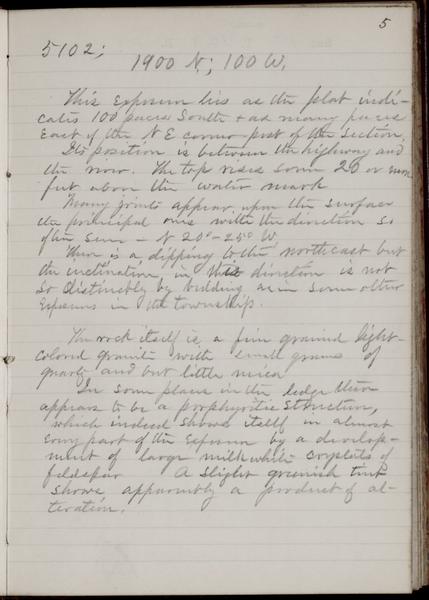 5
5102;
1900 N.; 100 W.
This Exposure lies as the plat indi-
cates 100 paces South & as many paces
East of the N E corner-post of the Section.
Its position is between the highway and
the river. The top rises some 20 or more
feet above the water mark
Many joints appear upon the surface
the principal ones with the direction
of the same - N 20°-25° W.
There is a dipping to the northeast but
the inclination in this direction is not
so distinctly by bedding as in some other
Exposures in the township.
The rock itself is a fine grained light-
colored granite with small grains of
quartz and but little mica
In some places in the ledge there
appears to be a porphyritic structure,
which indeed shows itself in almost
every part of the Exposure by a develop-
ment of large milk white crystals of
feldspar A slight greenish tint
shows, apparently a product of al-
teration.